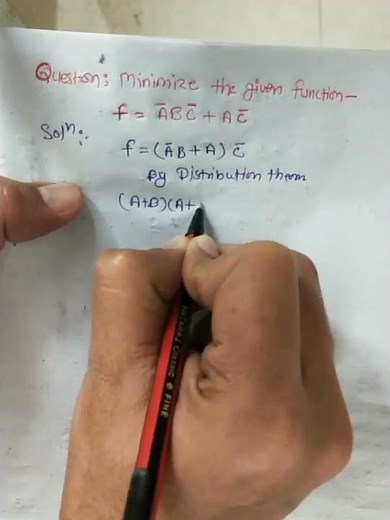 Question: Minimize the given function—
f = A̅BC̅ + AC̅
Soln:.
f = (A̅B + A) C̅
By Distribution therm
(A+B)(A+
CLASSIC FINE